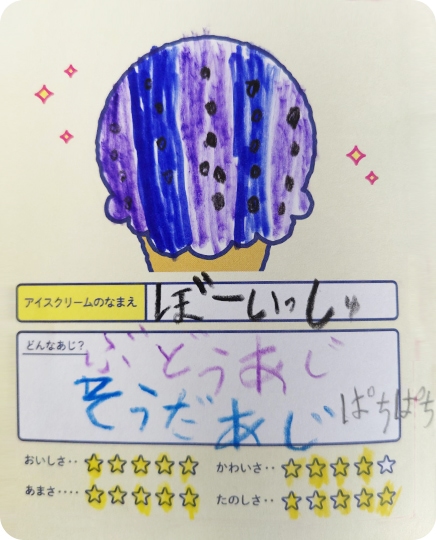 アイスクリームのなまえ ぼーいっしゅ
どんなあじ?
ぶどうあじ
そうだあじ ぱちぱち
おいしさ‥ ☆☆☆☆☆ かわいさ‥ ☆☆☆☆☆
あまさ‥‥ ☆☆☆☆☆ たのしさ‥ ☆☆☆☆☆